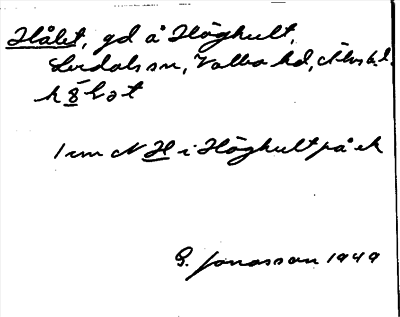 Hålet, gd å Höghult,
Lerdals sn, Valbo hd, Älvsb.l.
1 cm N H i Höghult på ek
G. Jonasson 1949